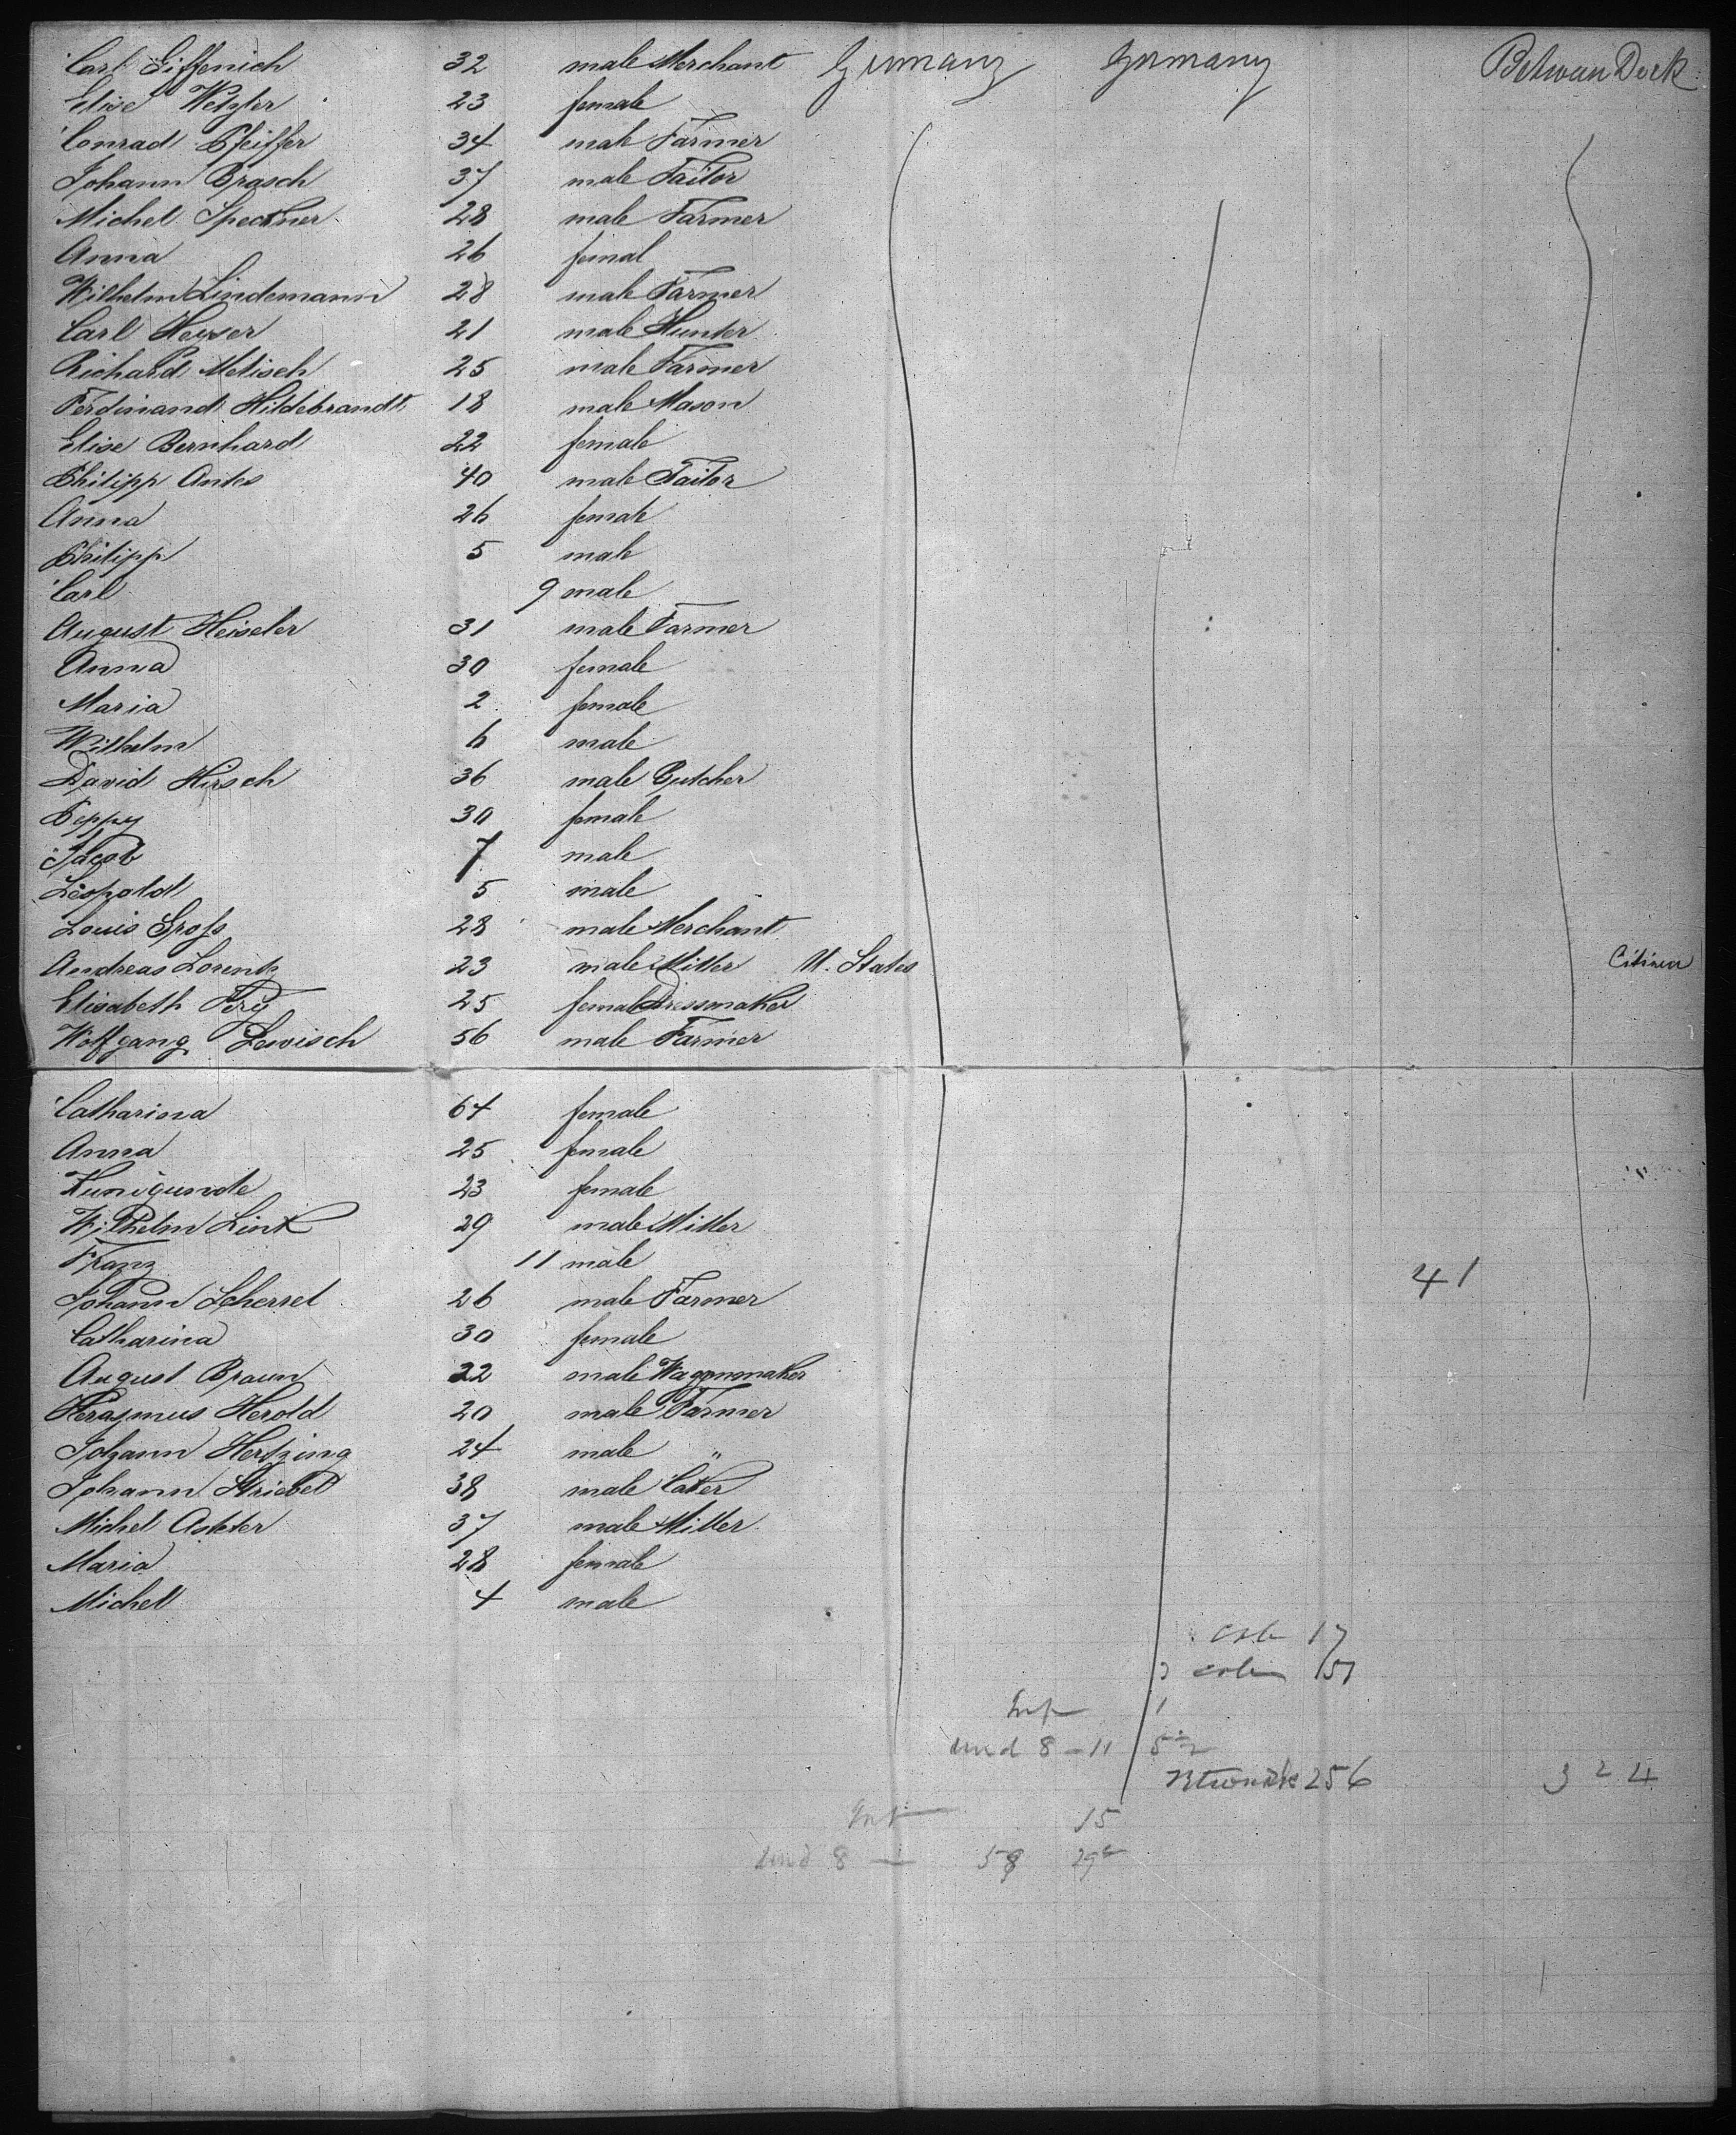 Carl Giffenich 32 male Merchant Germany Germany Between Deck
Elise Wetzler 23 female
Conrad Pfeiffer 34 male Farmer
Johann Brasch 37 male Tailor
Michel Spechner 28 male Farmer
Anna 26 femal
Wilhelm Lindemann 28 male Farmer
Carl Heyser 21 male Hunter
Richard Metisch 25 male Farmer
Ferdinand Hildebrandt 18 male Mason
Elise Bernhard 22 female
Philipp Antes 40 male Tailor
Anna 26 female
Philipp 5 male
Carl 9 male
August Heiseler 31 male Farmer
Anna 30 female
Maria 2 female
Wilhelm 6 male
David Hirsch 36 male Butcher
Peppy 30 female
Jacob 7 male
Leopold 5 male
Louis Groſs 28 male Merchant
Andreas Lorentz 23 male Miller U. States Citizen
Elisabeth Fry 25 female Dressmaker
Wolfgang Lewisch 56 male Farmer
Catharina 64 female
Anna 25 female
Kunigunde 23 female
Wilhelm Link 29 male Miller
Franz 11 male
41
Johann Scherrel 26 male Farmer
Catharina 30 female
August Braun 22 male Waggonmaker
Herasmus Herold 20 male Farmer
Johann Hertzing 24 male "
Johann Striebel 38 male
Michel Achter 37 male Miller
Maria 28 female
Michel 4 male
17
151
Inf 1
und 8 - 11 5
256 324
Inf 15
und 8 — 58